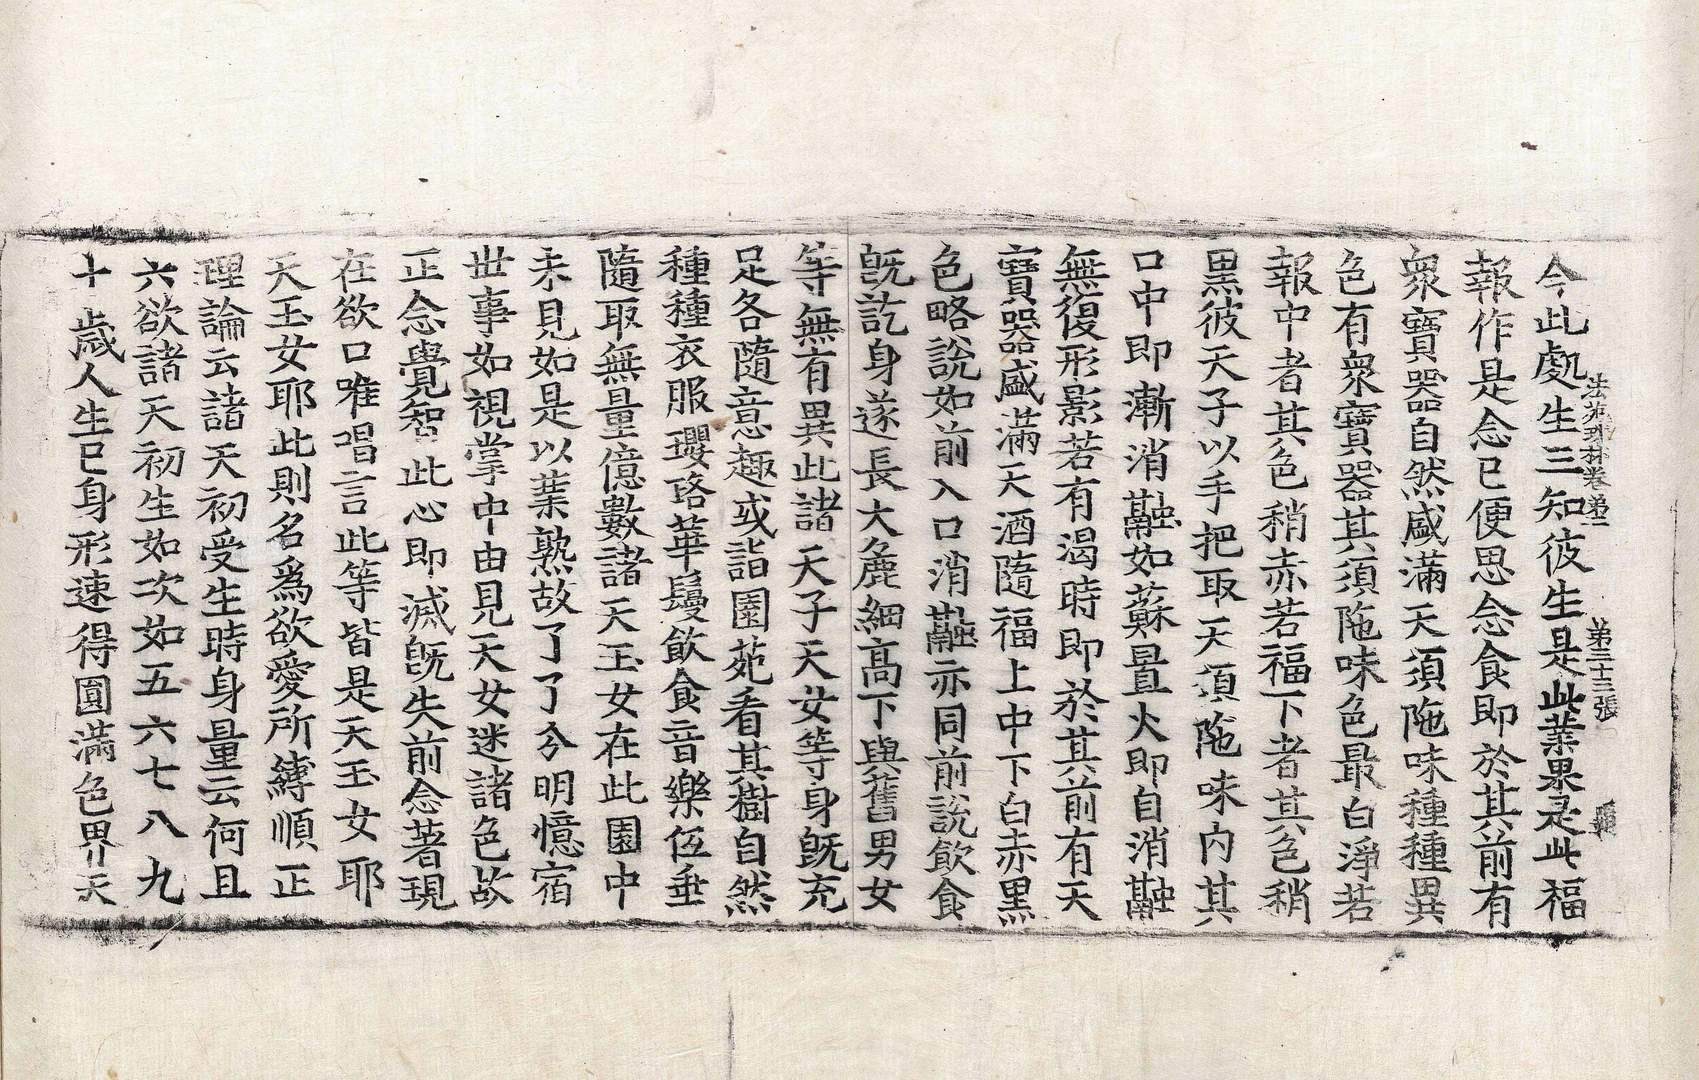 法苑珠林卷第二　第三十三張
今此處生三知彼生是此業果是此福
報作是念已便思念食即於其前有
衆寶器自然盛滿天須陁味種種異
色有衆寶器其須陁味色最白淨若
報中者其色稍赤若福下者其色稍
黑彼天子以手把取天須陁味内其
口中即漸消融如蘇置火即自消融
無復形影若有渴時即於其前有天
寶器盛滿天酒隨福上中下白赤黑
色略說如前入口消融亦同前說飲食
旣訖身遂長大麁細高下與舊男女
等無有異此諸天子天女等身旣充
足各隨意趣或詣園苑看其樹自然
種種衣服瓔珞華鬘飲食音樂伍垂
隨取無量億數諸天玉女在此園中
未見如是以業熟故了了分明憶宿
世事如視掌中由見天女迷諸色故
正念覺智此心即滅旣失前念著現
在欲口唯唱言此等皆是天玉女耶
天玉女耶此則名爲欲愛所縛順正
理論云諸天初受生時身量云何且
六欲諸天初生如次如五六七八九
十歲人生已身形速得圓滿色界天